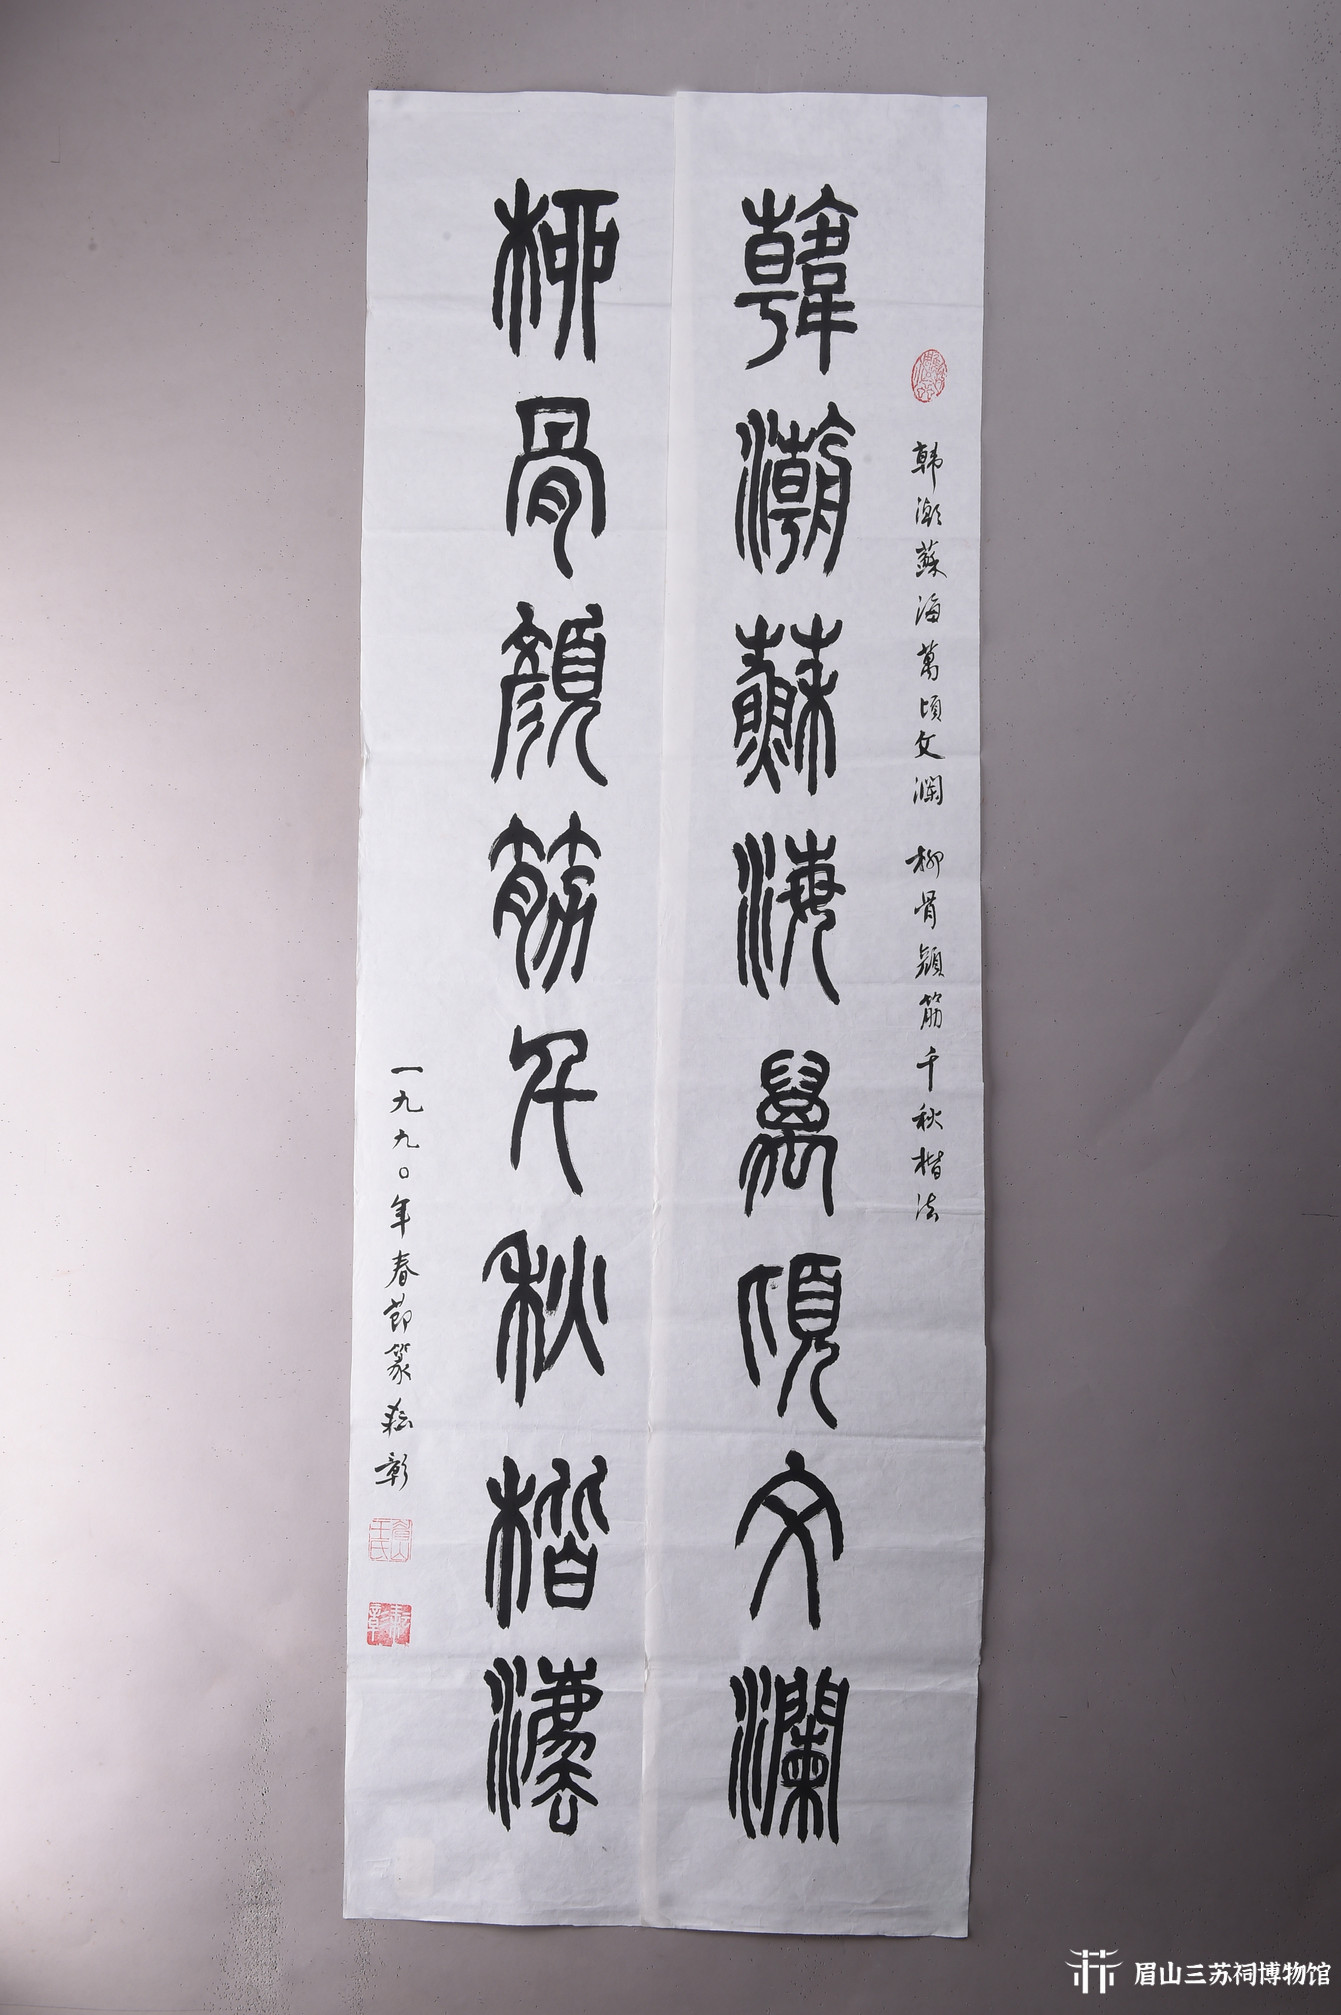 韓潮蘇海萬頃文瀾
韩潮蘇海萬頃文澜 柳骨顔筋千秋楷法
柳骨顏筋千秋楷灋
一九九〇年春節篆耘彰
王氏
眉山三苏祠博物馆